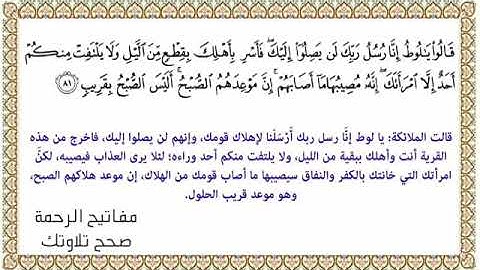 قَالُوا۟ يَـٰلُوطُ إِنَّا رُسُلُ رَبِّكَ لَن يَصِلُوٓا۟ إِلَيْكَ ۖ فَأَسْرِ بِأَهْلِكَ بِقِطْعٍ مِّنَ ٱلَّيْلِ وَلَا يَلْتَفِتْ مِنكُمْ
أَحَدٌ إِلَّا ٱمْرَأَتَكَ ۖ إِنَّهُۥ مُصِيبُهَا مَآ أَصَابَهُمْ ۚ إِنَّ مَوْعِدَهُمُ ٱلصُّبْحُ ۚ أَلَيْسَ ٱلصُّبْحُ بِقَرِيبٍ ٨١
قالت الملائكة: يا لوط إنَّا رسل ربك أَرْسَلَنا لإهلاك قومك، وإنهم لن يصلوا إليك، فاخرج من هذه
القرية أنت وأهلك ببقية من الليل، ولا يلتفت منكم أحد وراءه؛ لئلا يرى العذاب فيصيبه، لكنَّ
امرأتك التي خانتك بالكفر والنفاق سيصيبها ما أصاب قومك من الهلاك، إن موعد هلاكهم الصبح،
وهو موعد قريب الحلول.
مفاتيح الرحمة
صحح تلاوتك